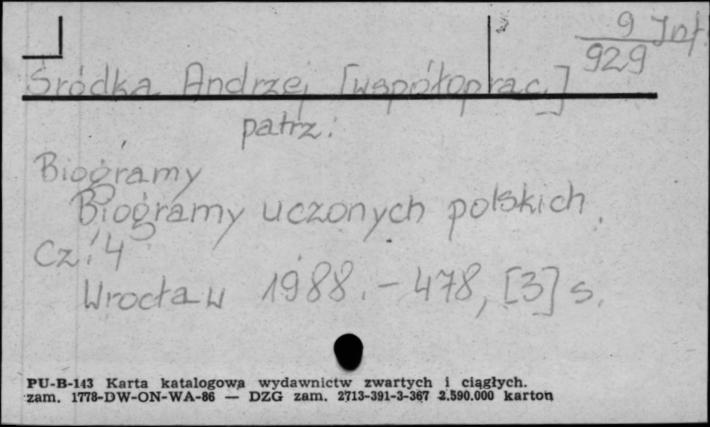 9 Inf.
929
Śródka Andrzej [współoprac.]
patrz:
Biogramy
Biogramy uczonych polskich.
Cz. 4
Wrocław 1988. - 478, [3] s.
PU-B-143 Karta katalogowa wydawnictw zwartych i ciągłych.
zam. 1778-DW-ON-WA-86 — DZG zam. 2713-391-3-367 2.590.000 karton